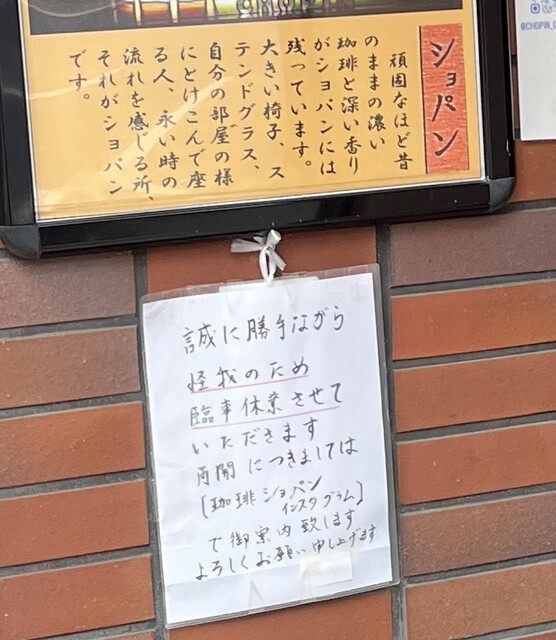 ショパン
頑固なほど昔
のままの濃い
珈琲と深い香り
がショパンには
残っています。
大きい椅子、ス
テンドグラス、
自分の部屋の様
にとけこんで座
る人、永い時の
流れを感じる所、
それがショパン
です。
誠に勝手ながら
怪我のため
臨時休業させて
いただきます
再開につきましては
[珈琲ショパン
インスタグラム]
で御案内致します
よろしくお願い申し上げます